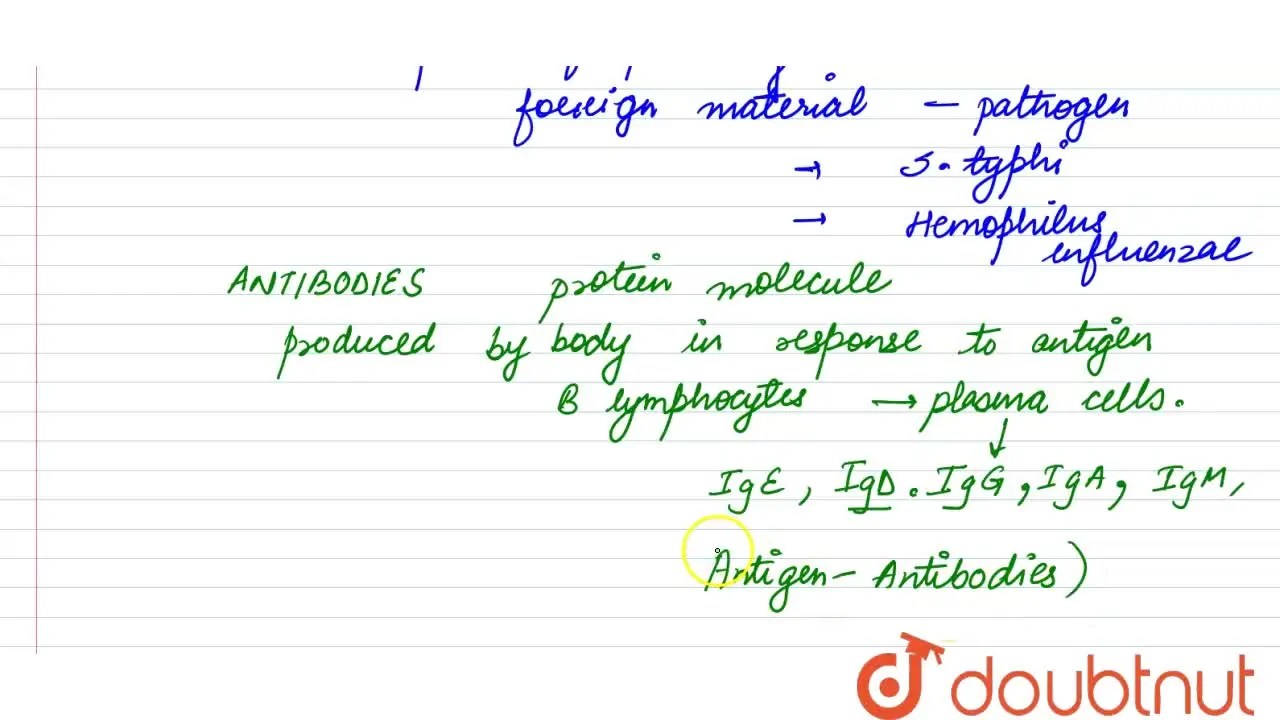 foreign material - pathogen
→ S. typhi
→ Hemophilus
influenzae
ANTIBODIES protein molecule
produced by body in response to antigen
B lymphocytes → plasma cells.
↓
IgE, IgD. IgG, IgA, IgM,
Antigen - Antibodies)
doubtnut